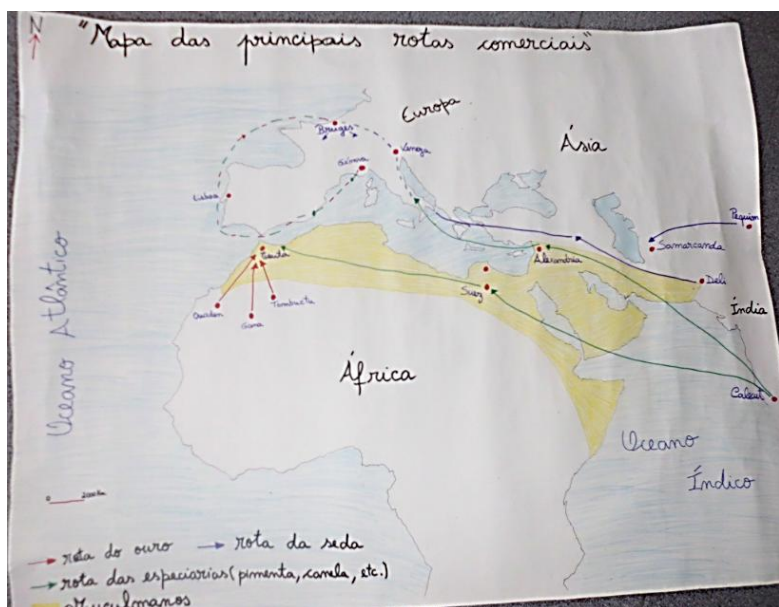 N
"Mapa das principais rotas comerciais"
Europa
Ásia
Bruges
Veneza
Génova
Lisboa
Pequim
Samarcanda
Ceuta
Alexandria
Deli
Suez
Índia
Gana
Tombuctu
Oceano Atlântico
África
Calecut
Oceano
Índico
rota do ouro
rota da seda
rota das especiarias (pimenta, canela, etc.)
Muçulmanos